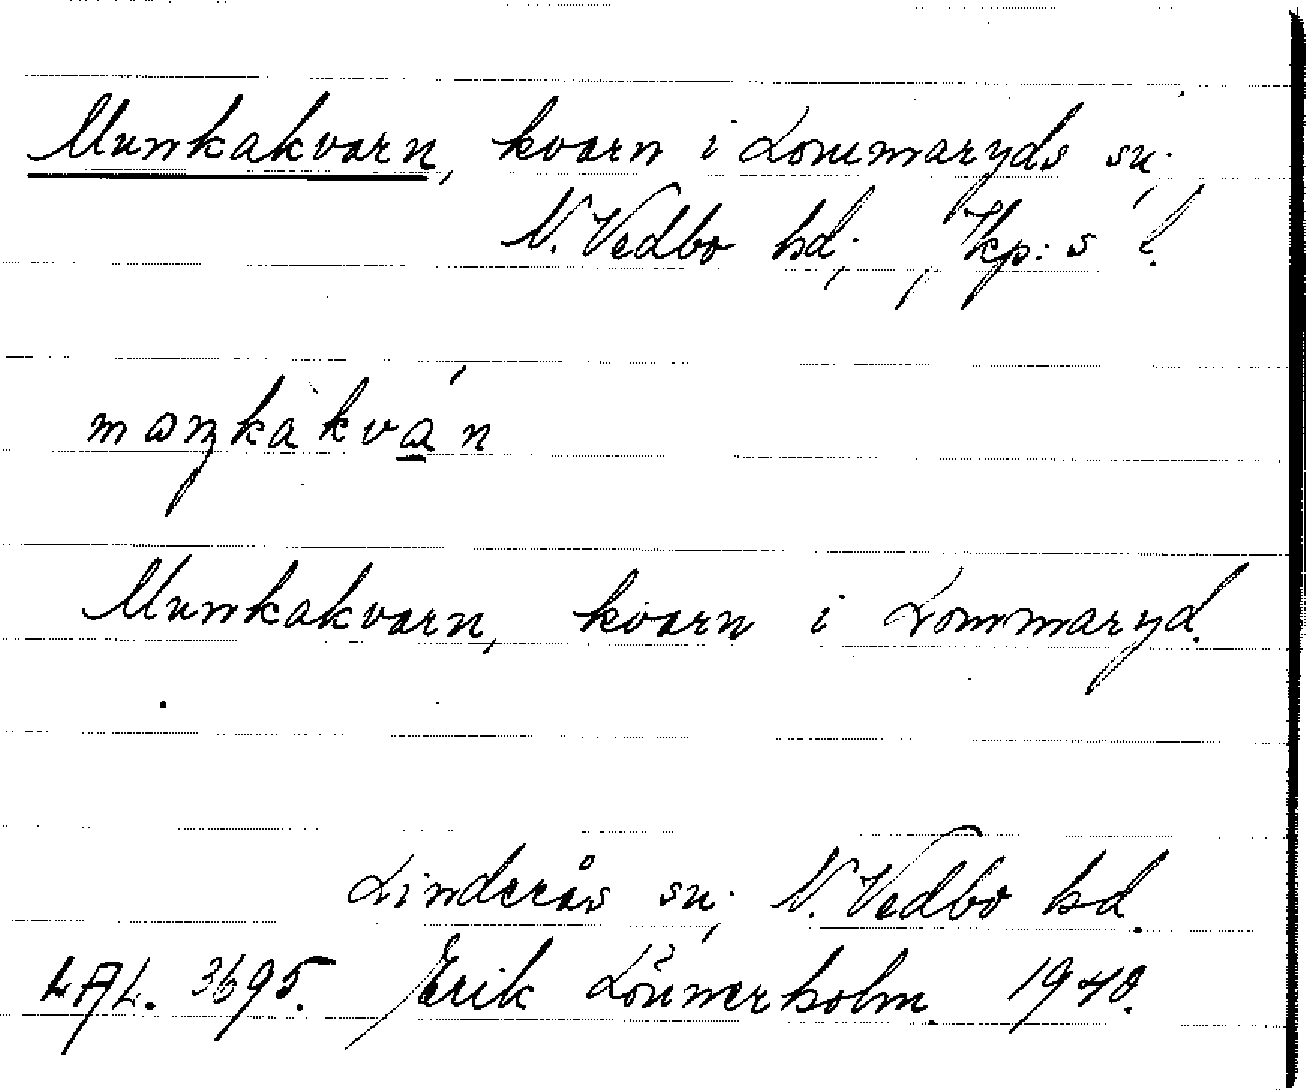 Munkakvarn, kvarn i Lommaryds sn;
N. Vedbo hd; Jkp:s l.
Munkakvarn, kvarn i Lommaryd.
Linderås sn; N. Vedbo hd.
LAL. 3695. Erik Lönnerholm. 1940.